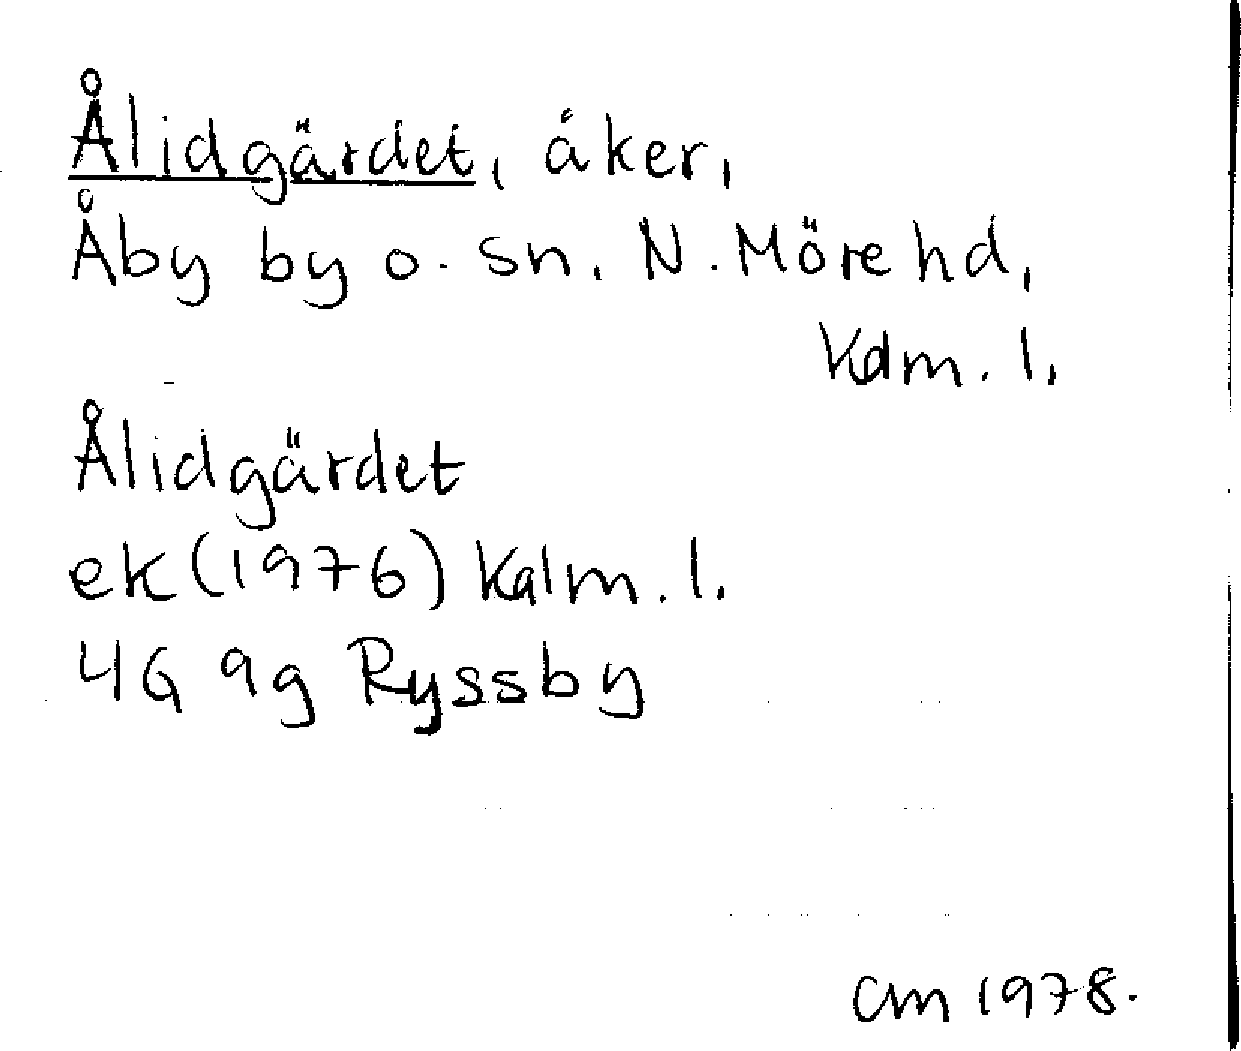 Ålidgärdet, åker,
Åby by o. sn. N. Möre hd,
Kalm. l.
Ålidgärdet
ek (1976) Kalm. l.
4G 9g Ryssby
CM 1978.